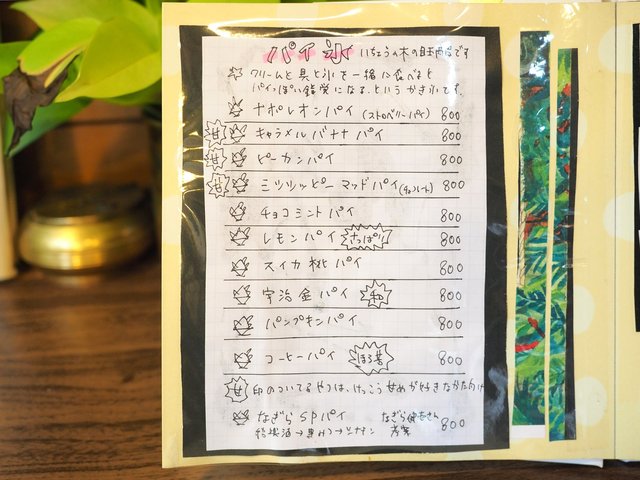 パイ氷 いちょうの木の自慢商品です
☆ クリームと具と氷を一緒に食べると
パイっぽい錯覚になる。という かき氷です。
ナポレオンパイ (ストロベリーパイ) 800
甘 キャラメルバナナパイ 800
甘 ピーカンパイ 800
甘 ミシシッピーマッドパイ (チョコレート) 800
チョコミントパイ 800
レモンパイ さっぱり 800
スイカ桃パイ 800
宇治金パイ 和 800
パンプキンパイ 800
コーヒーパイ ほろ苦 800
甘 印のついてるやつは、けっこう甘めが好きなかた向け
なぎらSPパイ なぎら健壱さん
考案 800